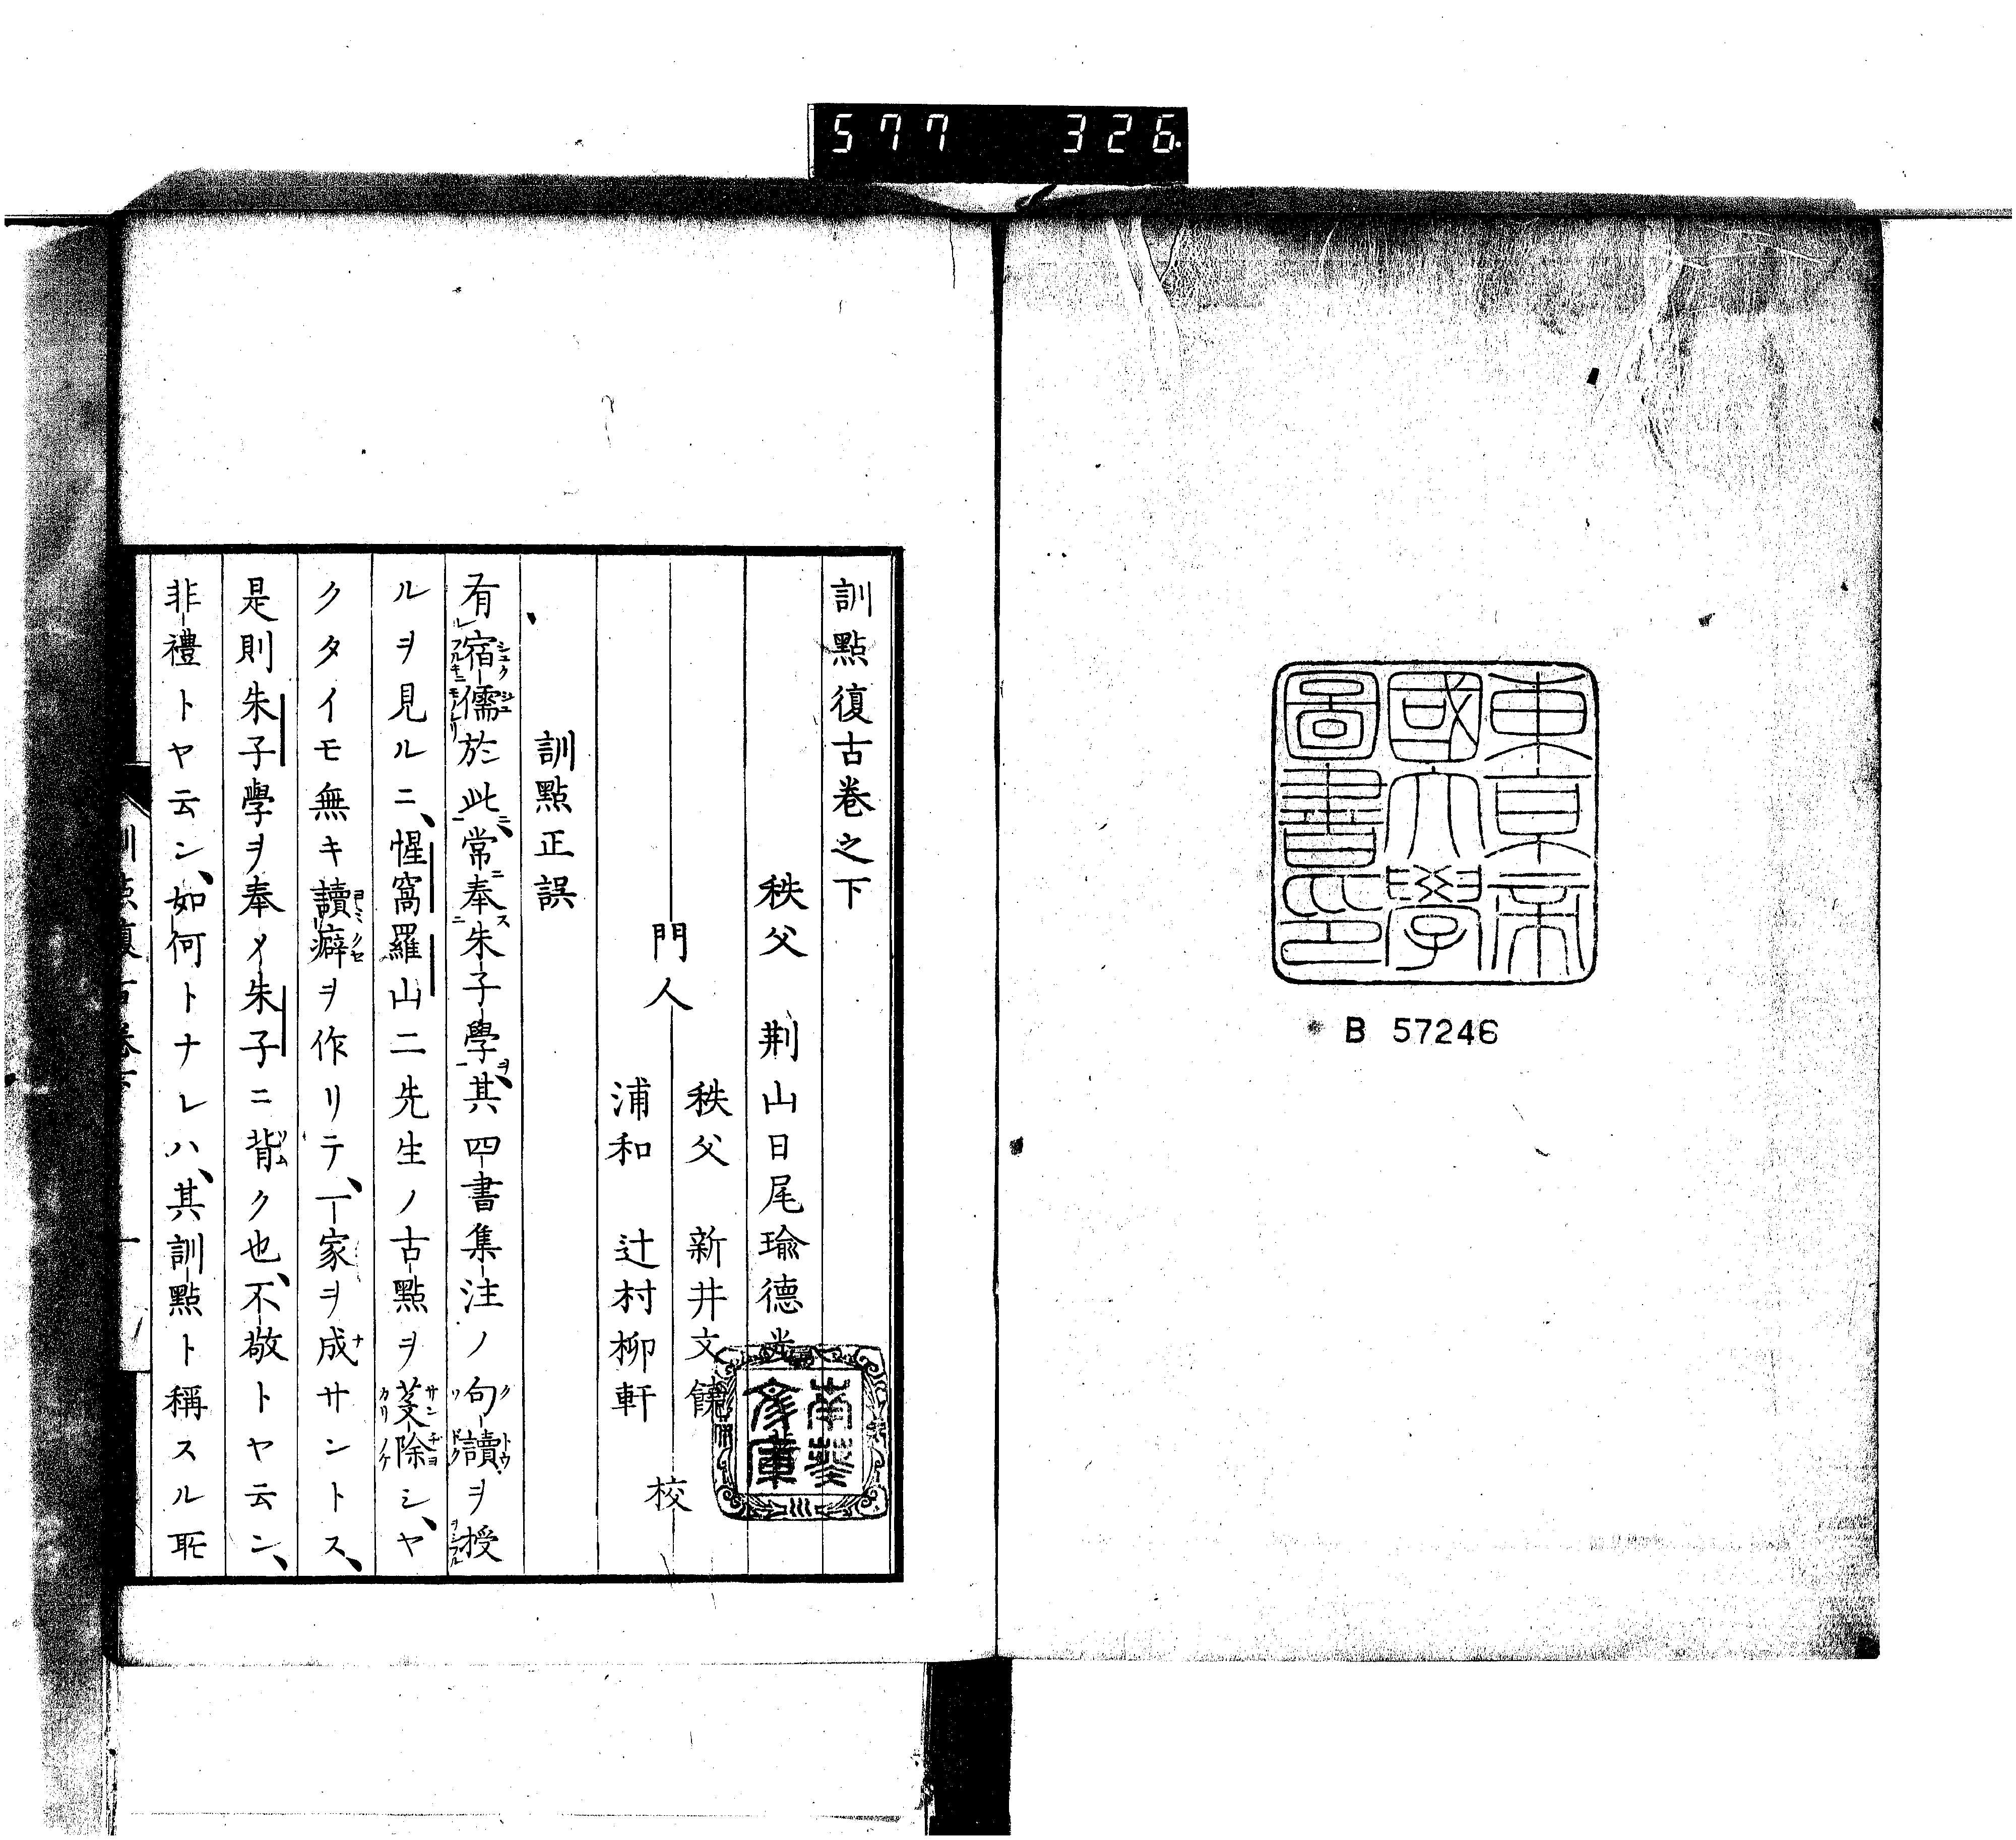 577 326
東京帝
國大學
圖書印
B 57246
訓點復古卷之下
秩父 荆山日尾瑜德光
門人 秩父 新井文饒
浦和 辻村柳軒 校
南葵
文庫
訓點正誤
有宿儒於此常奉朱子學其四書集注ノ句讀ヲ授
ルヲ見ルニ、惺窩羅山二先生ノ古點ヲ芟除シ、ヤ
クタイモ無キ讀癖ヲ作リテ、一家ヲ成サントス、
是則朱子學ヲ奉メ朱子ニ背ク也、不敬トヤ云ン、
非禮トヤ云ン、如何トナレハ、其訓點ト稱スル耻